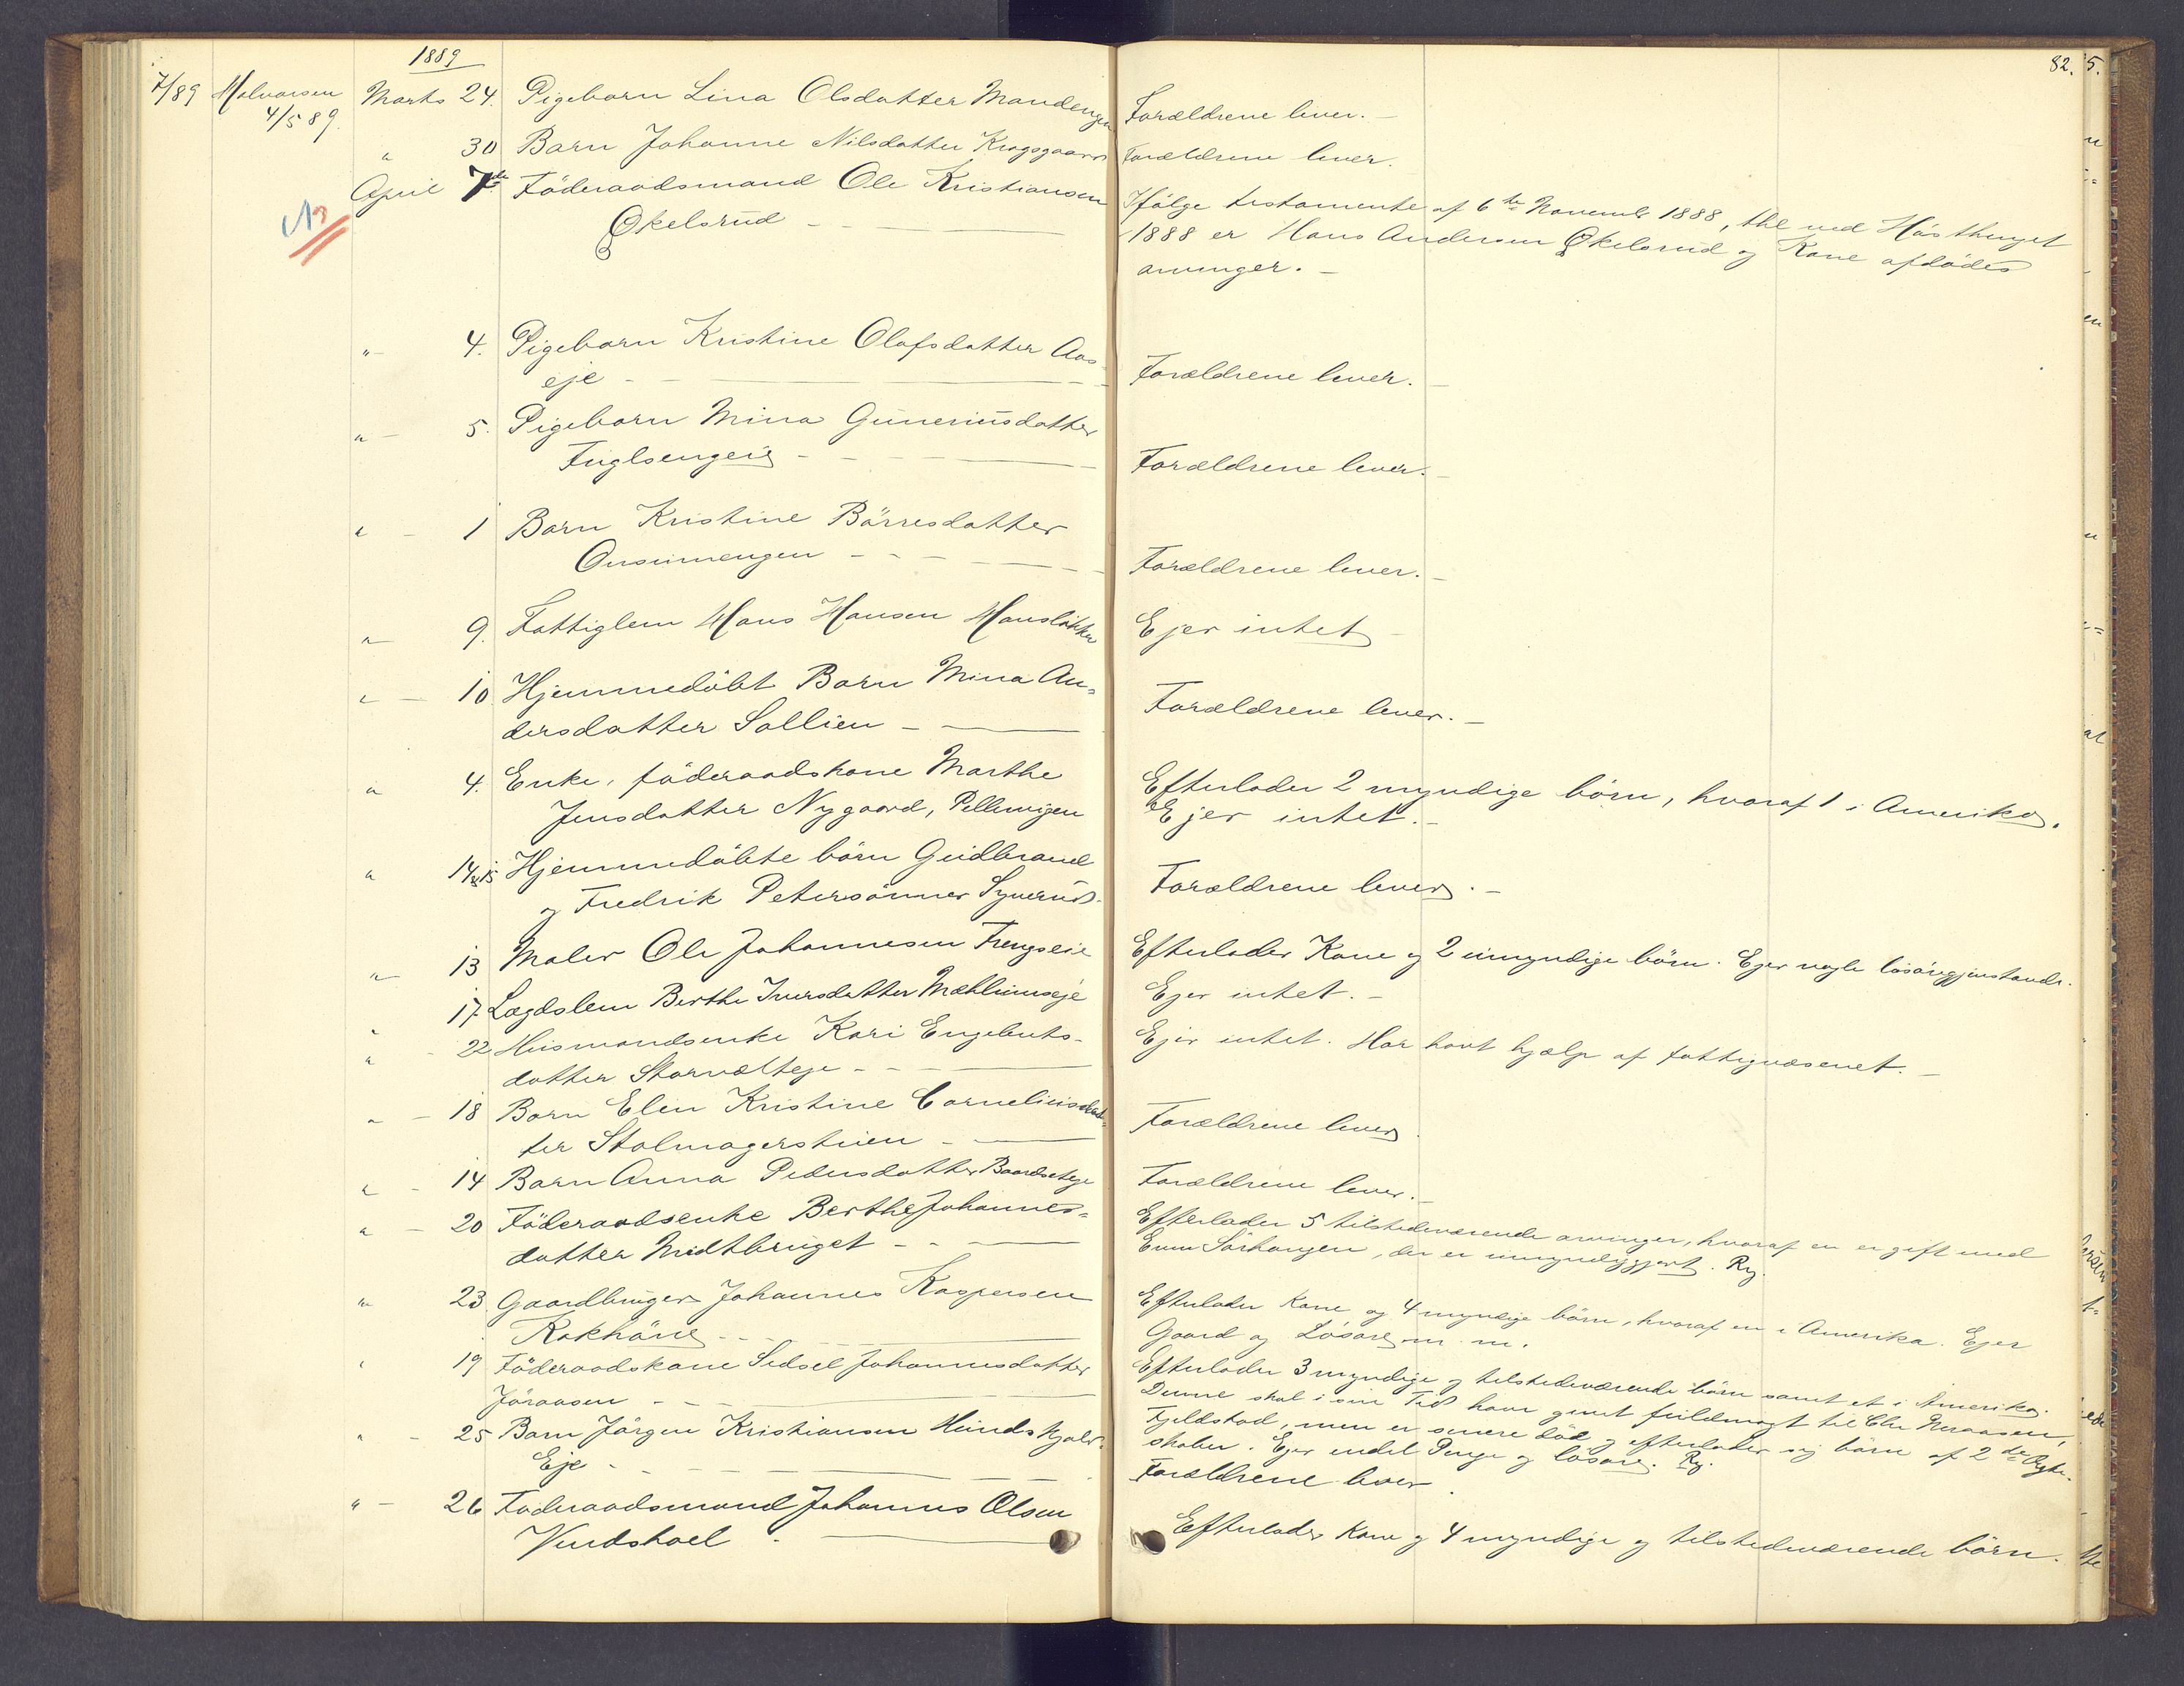 1889
82.
7/89 Halvorsen Marts 24. Pigebarn Lina Olsdatter Mandengen Forældrene lever. —
4/5 89.
" 30 Barn Johanne Nilsdatter Krogsgaard Forældrene lever.
April 7de Föderaadsmand Ole Kristiansen
Økelsrud —
Ifölge testamente af 6te Novembr 1888, thl. ved Höstthinget
1888 er Hans Andersen Økelsrud og Kone afdödes
arvinger. —
" 4. Pigebarn Kristine Olafsdatter Aas
eje — Forældrene lever. —
" 5. Pigebarn Mina Guneriusdatter
Fuglsengeie — Forældrene lever. —
" 1 Barn Kristine Börresdatter
Onsumengen — Forældrene lever. —
" 9. Fattiglem Hans Hansen Hanslökken Ejer intet —
" 10. Hjemmedöbt Barn Mina An=
dersdatter Sollien — Forældrene lever. —
" 4. Enke, föderaadskone Marthe
Jensdatter Nygaard, Pellemyren
Efterlader 2 myndige börn, hvoraf 1 i Amerika.
Ejer intet. —
" 14 & 15 Hjemmedöbte börn Gudbrand
og Fredrik Petersönner Syverud. Forældrene lever. —
" 13 Maler Ole Johannesen Frengseie Efterlader Kone og 2 umyndige börn. Ejer nogle lösöregjenstande.
" 17. Lægdslem Berthe Iversdatter Mæhlumseje Ejer intet. —
" 22 Husmandsenke Kari Engebrets-
datter Storvælteje — Ejer intet. Har havt hjælp af fattigvæsenet. —
" 18 Barn Elen Kristine Corneliusdat=
ter Stolmagerstuen — Forældrene lever.
" 14 Barn Anna Pedersdatter Baardseteje Forældrene lever. —
" 20 Föderaadsenke Berthe Johannes=
datter Midtbruget —
Efterlader 5 tilstedeværende arvinger, hvoraf en er gift med
Even Sörhaugen, der er umyndiggjort. Rg.
" 23. Gaardbruger Johannes Kaspersen
Rokhöne —
Efterlader Kone og 4 myndige börn, hvoraf en i Amerika. Ejer
Gaard og Lösöre m. m.
" 19 Föderaadskone Sidsel Johannesdatter
Jöraasen —
Efterlader 3 myndige og tilstedeværende börn samt et i Amerika.
Denne skal i sin Tid have givet fuldmagt til Chr Neraasen,
Fjeldstad, men er senere död og efterlader sig börn af 2de Ægte-
skaber. Ejer endel Penge og lösöre. Rg.
" 25 Barn Jörgen Kristiansen Hundskjols-
Eje — Forældrene lever.
" 26 Föderaadsmand Johannes Olsen
Vindshoel — Efterlader Kone og 4 myndige og tilstedeværende börn.